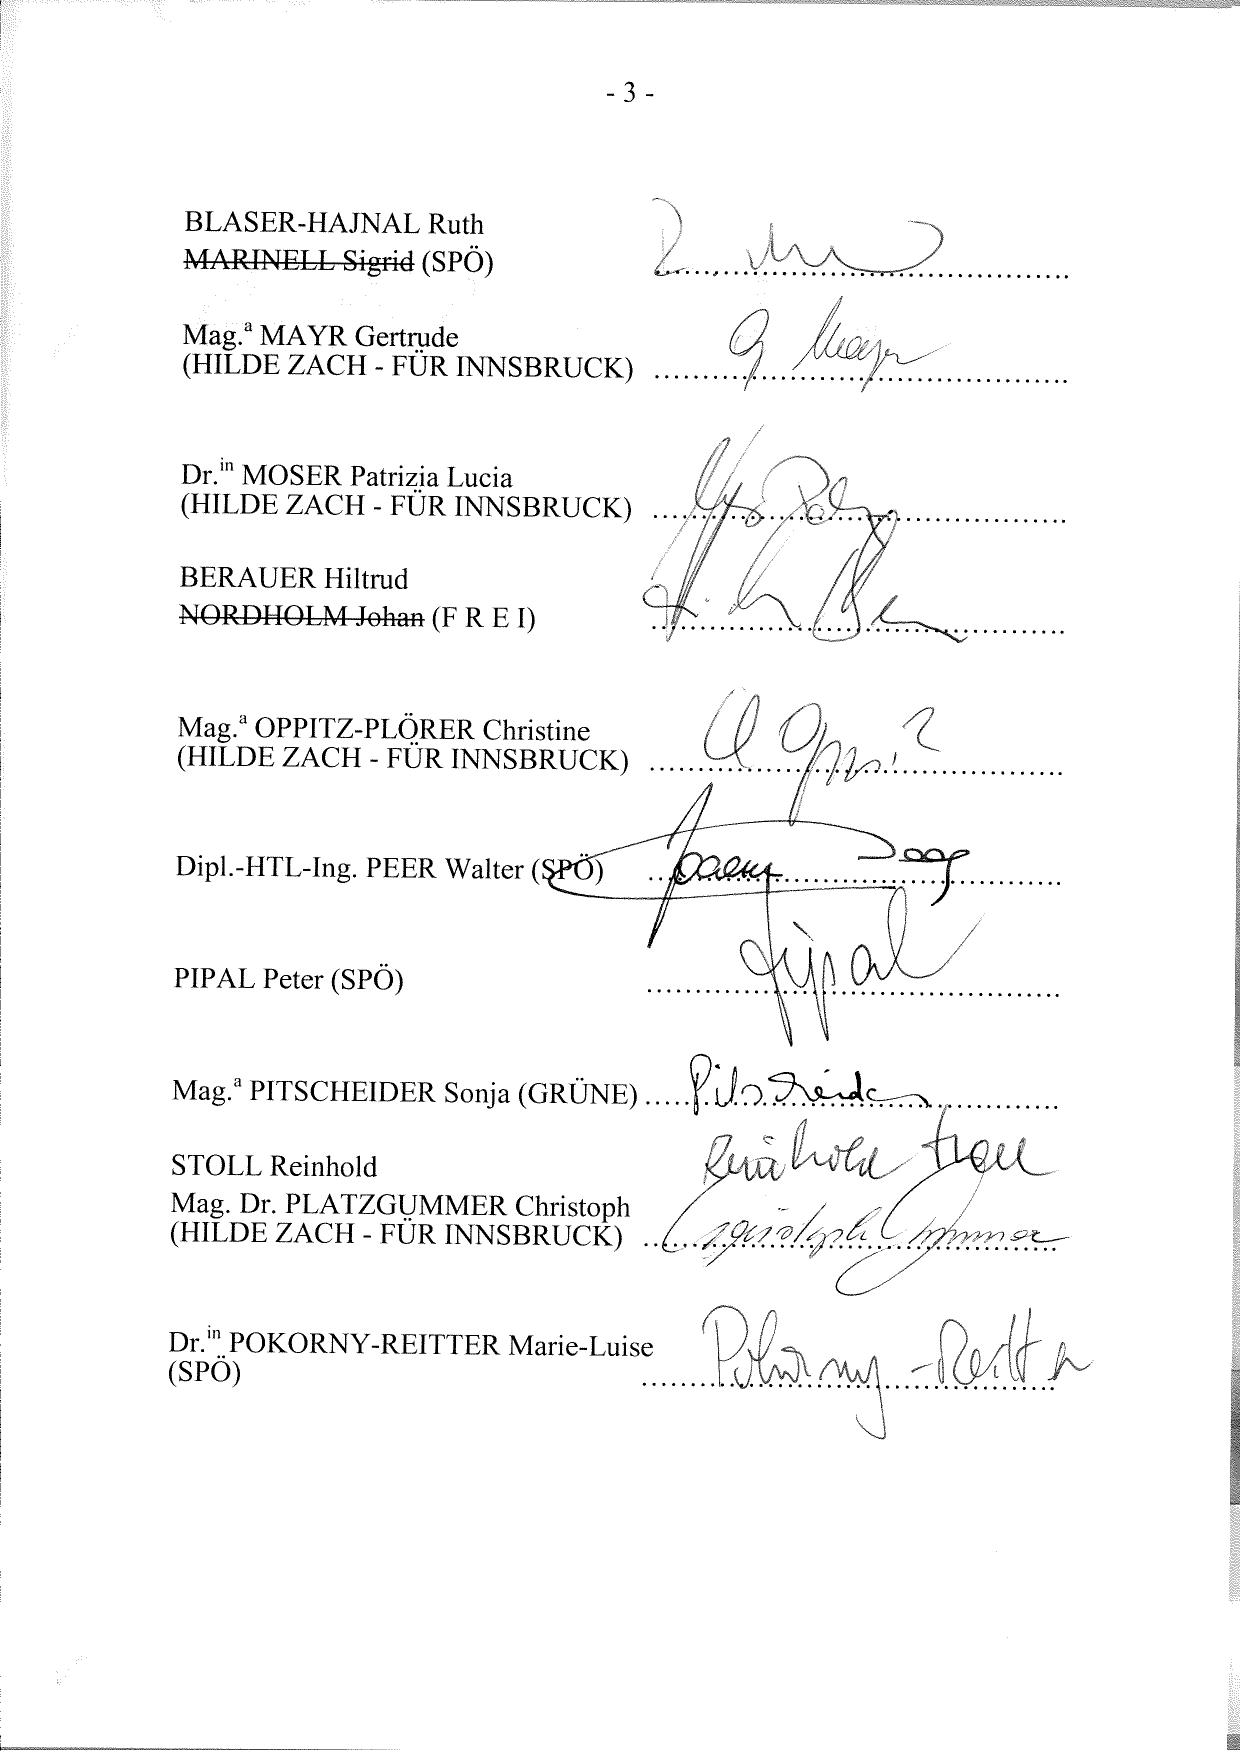 - 3 -
BLASER-HAJNAL Ruth
MARINELL Sigrid (SPÖ)
Mag.ª MAYR Gertrude
G Mayr
(HILDE ZACH - FÜR INNSBRUCK)
Dr.in MOSER Patrizia Lucia
(HILDE ZACH - FÜR INNSBRUCK)
BERAUER Hiltrud
NORDHOLM Johan (F R E I)
Mag.ª OPPITZ-PLÖRER Christine
(HILDE ZACH - FÜR INNSBRUCK)
Dipl.-HTL-Ing. PEER Walter (SPÖ)
PIPAL Peter (SPÖ)
Pipal
Mag.ª PITSCHEIDER Sonja (GRÜNE)
Pitscheider
STOLL Reinhold
Reinhold Stoll
Mag. Dr. PLATZGUMMER Christoph
(HILDE ZACH - FÜR INNSBRUCK)
Dr.in POKORNY-REITTER Marie-Luise
Pokorny-Reitter
(SPÖ)